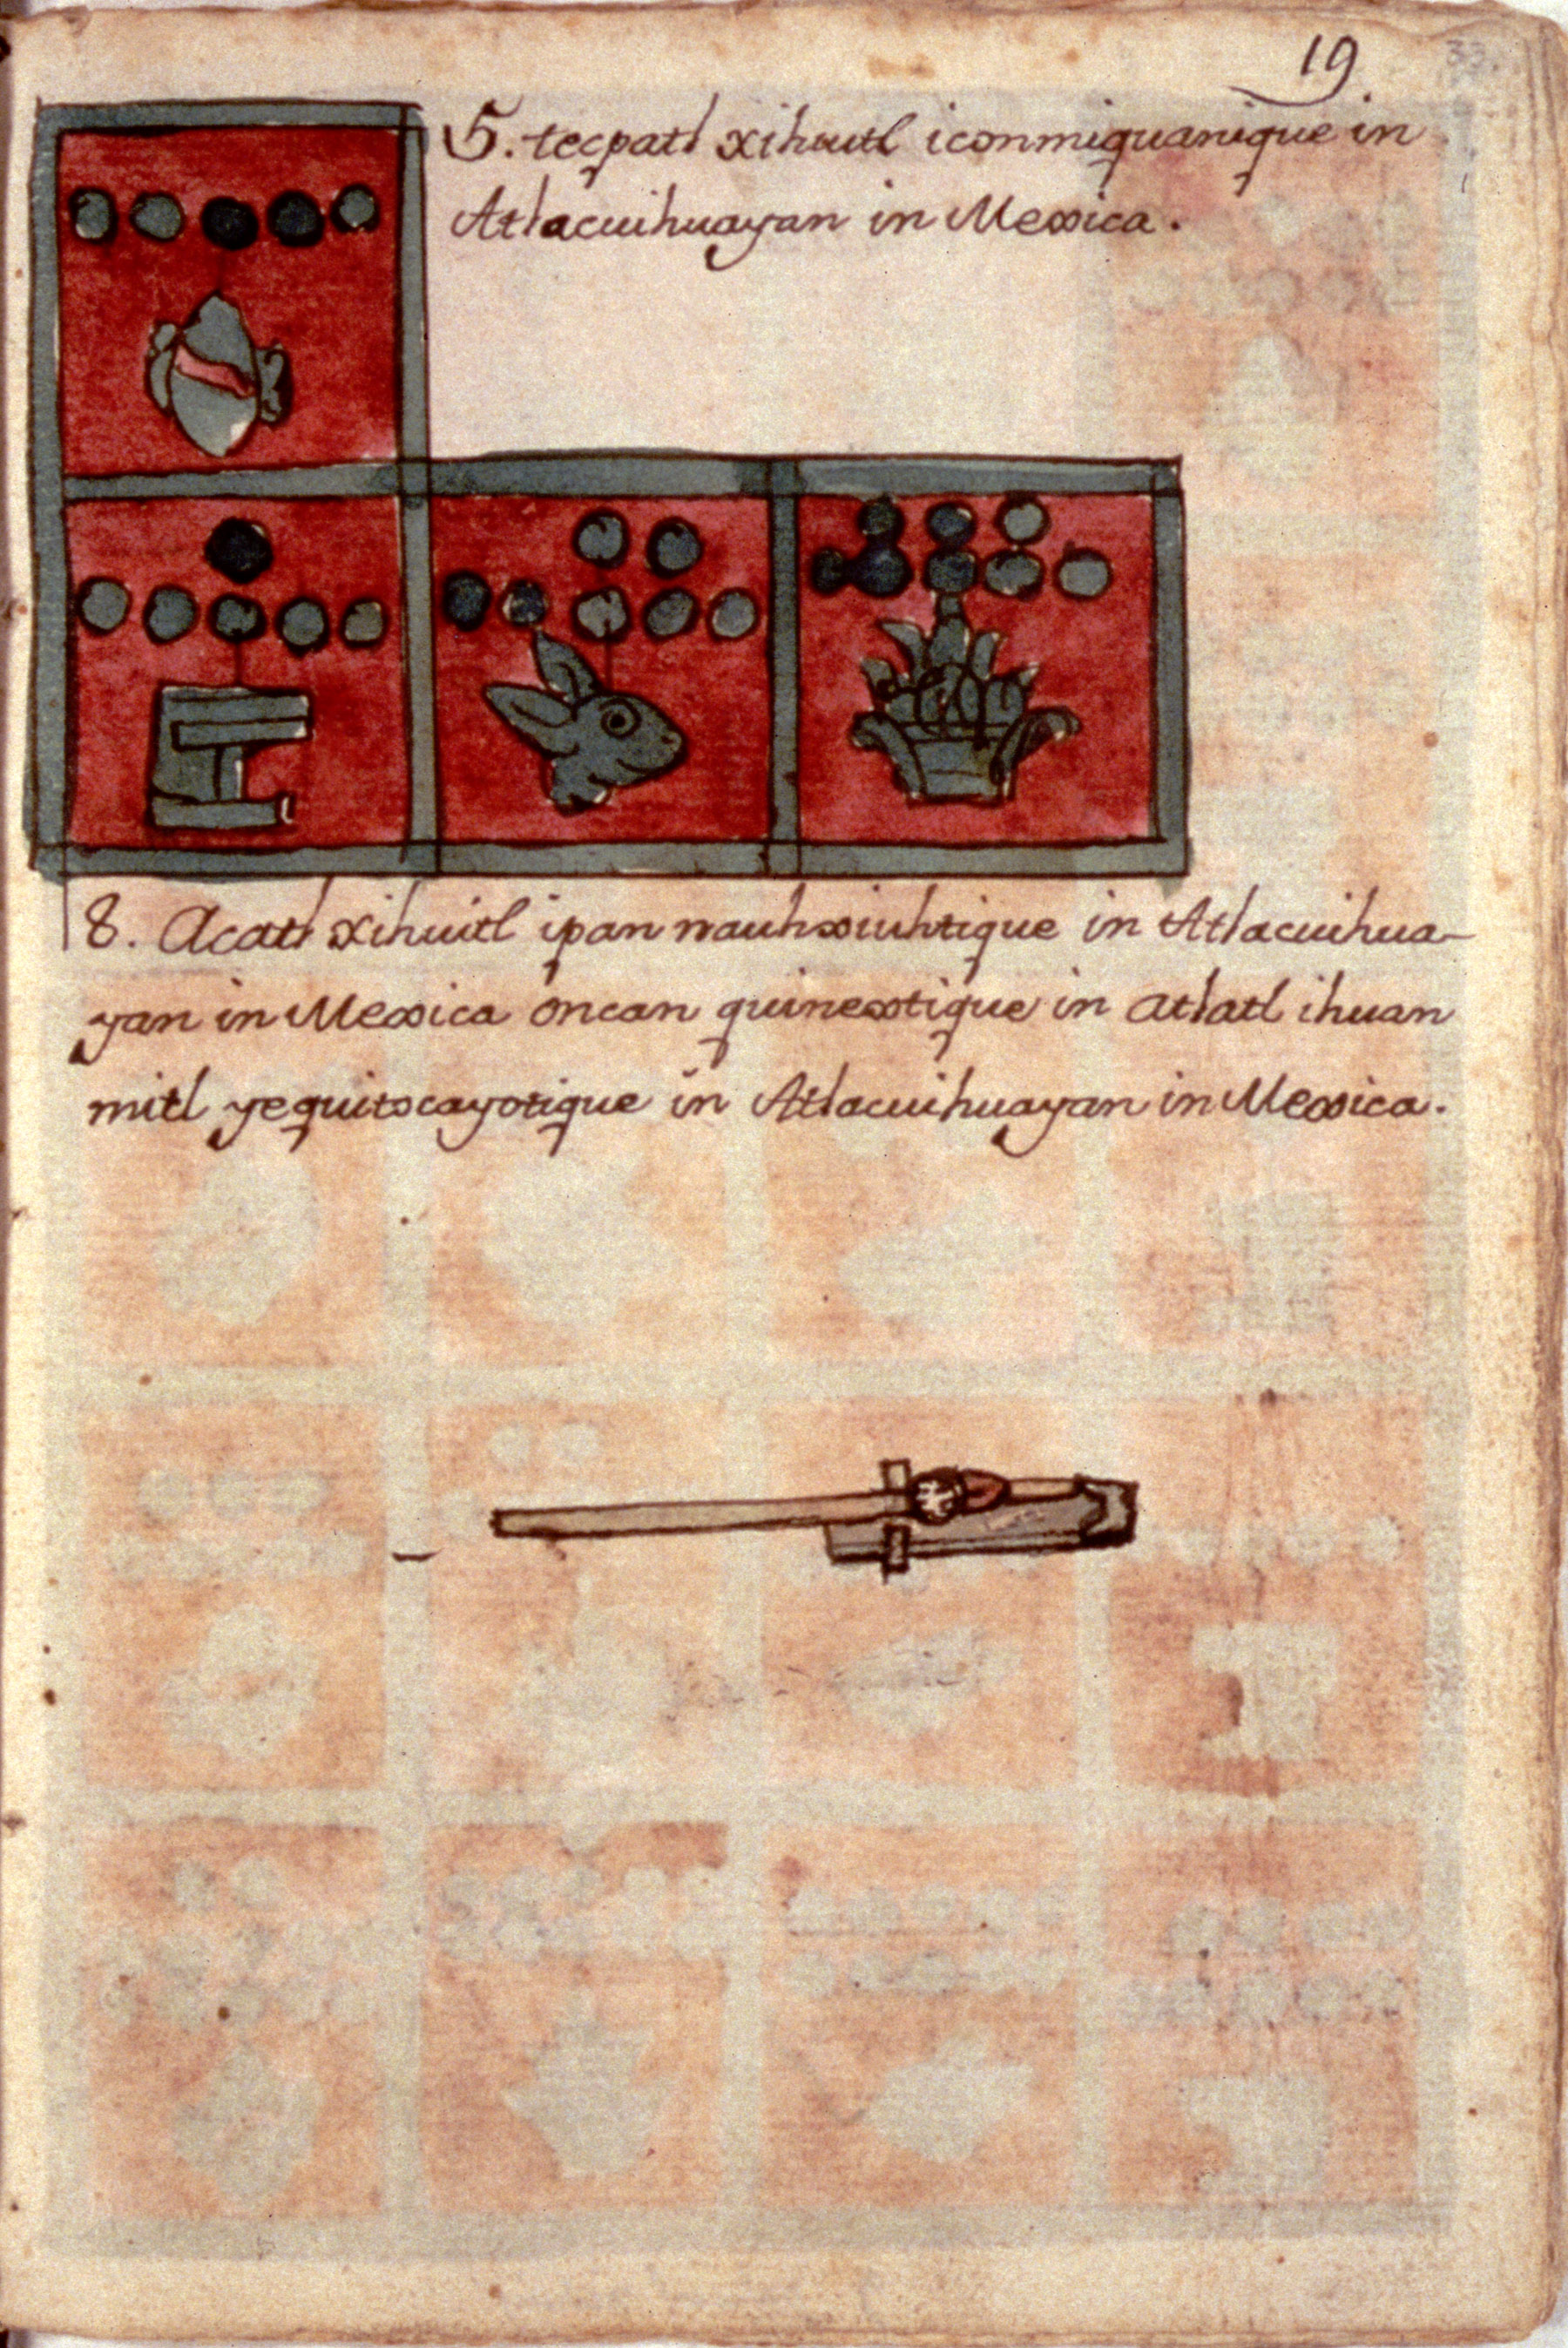 19
5. tecpatl xihuitl iconmiquanique in
Atlacuihuayan in Mexica.
8. Acatl xihuitl ipan nauhxiuhtique in Atlacuihua-
yan in Mexica oncan quinextique in atlatl ihuan
mitl yequitocayotique in Atlacuihuayan in Mexica.